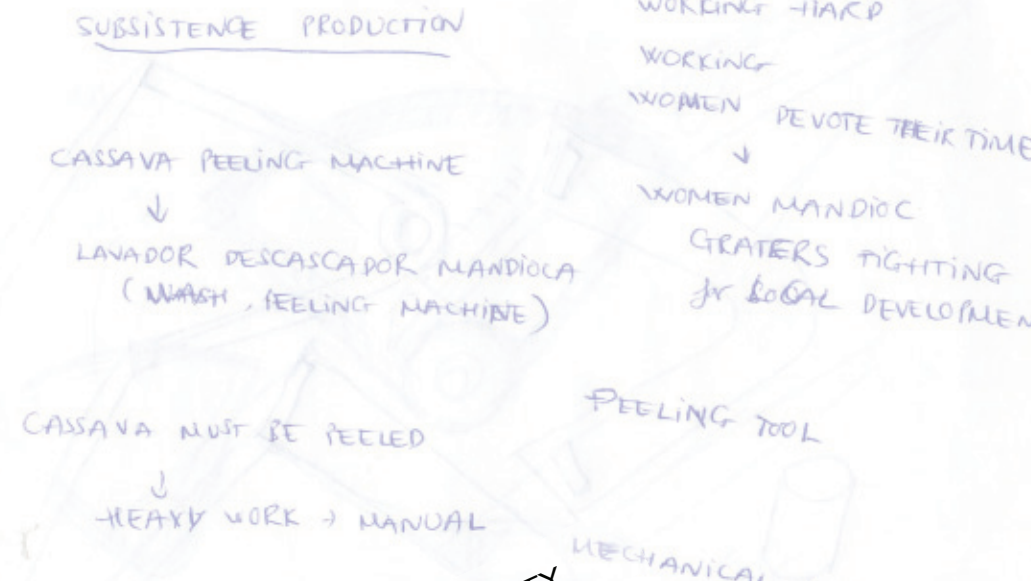 SUBSISTENCE PRODUCTION
CASSAVA PEELING MACHINE
↓
LAVADOR DESCASCADOR MANDIOCA
(WASH, PEELING MACHINE)
CASSAVA MUST BE PEELED
↓
HEAVY WORK → MANUAL
WORKING HARD
WORKING
WOMEN DEVOTE THEIR TIME
↓
WOMEN MANDIOC
GRATERS FIGHTING
for LOCAL DEVELOPMEN
PEELING TOOL
MECHANICAL